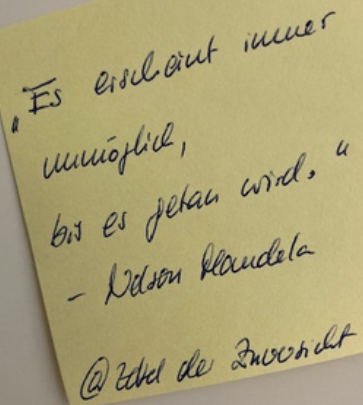 „Es erscheint immer
unmöglich,
bis es getan wird.“
- Nelson Mandela
@zettel der Zuversicht